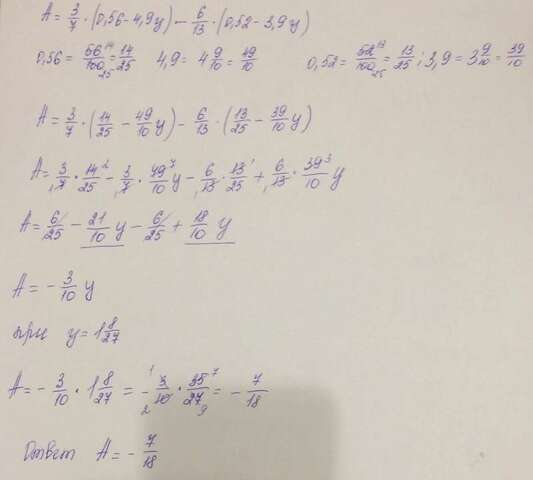 A = 3/7 · (0,56 - 4,9y) - 6/13 · (0,52 - 3,9y)
0,56 = 56¹⁴/100₂₅ = 14/25   4,9 = 4 9/10 = 49/10   0,52 = 52¹³/100₂₅ = 13/25 ; 3,9 = 3 9/10 = 39/10
A = 3/7 · (14/25 - 49/10 y) - 6/13 · (13/25 - 39/10 y)
A = 3/₁7 · 14²/25 - 3/₁7 · 49⁷/10 y - 6/₁13 · 13¹/25 + 6/₁13 · 39³/10 y
A = 6/25 - 21/10 y - 6/25 + 18/10 y
A = - 3/10 y
при y = 1 8/27
A = - 3/10 · 1 8/27 = - ¹3/₂10 · 35⁷/27₉ = - 7/18
Ответ A = - 7/18